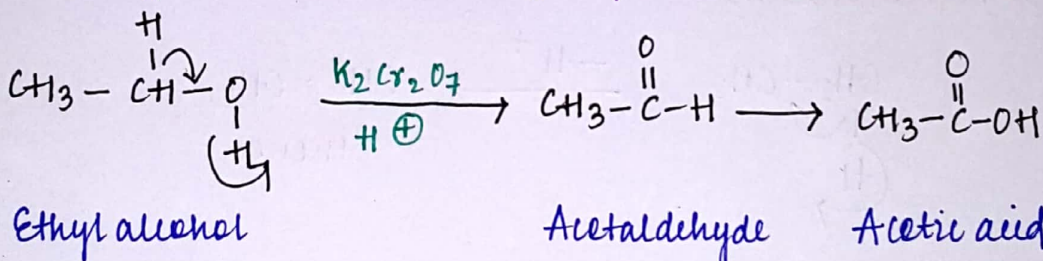 H
CH3 - CH - O
(H
K2Cr2O7
H ⊕
O
CH3-C-H
O
CH3-C-OH
Ethyl alcohol
Acetaldehyde
Acetic acid